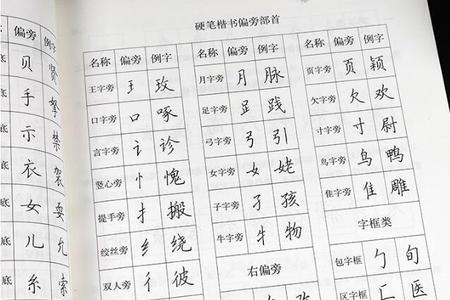 硬笔楷书偏旁部首
偏旁 例字
贝 贤
底 手 拏
底 示 禁
底 衣 袈
底 女 耍
底 儿 允
底 糸 索
名称 偏旁 例字
王字旁 王 玫
口字旁 口 啄
言字旁 讠 诊
竖心旁 忄 愧
提手旁 扌 搬
绞丝旁 纟 绕
双人旁 彳 彼
名称 偏旁 例字
月字旁 月 脉
足字旁 𧾷 践
弓字旁 弓 引
女字旁 女 姥
子字旁 子 孩
牛字旁 牜 物
右偏旁
名称 偏旁 例字
页字旁 页 颖
欠字旁 欠 欢
寸字旁 寸 尉
鸟字旁 鸟 鸭
隹字旁 隹 雕
字框类
包字框 勹 旬
区字框 匚 医